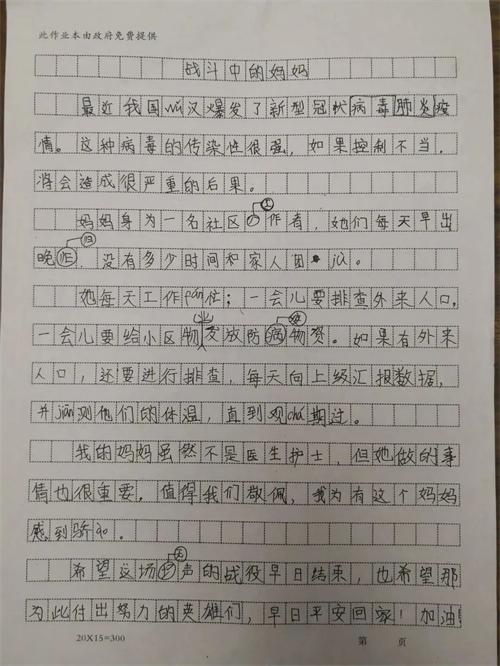 此作业本由政府免费提供
战斗中的妈妈
最近我国wǔ汉爆发了新型冠状病毒肺炎疫
情。这种病毒的传染性很强，如果控制不当，
将会造成很严重的后果。
妈妈身为一名社区工作者，她们每天早出
晚归，没有多少时间和家人团jù。
她每天工作fán忙；一会儿要排查外来人口，
一会儿要给小区物业发放防疫物资。如果有外来
人口，还要进行排查，每天向上级汇报数据，
并jiān测他们的体温，直到观chá期过。
我的妈妈虽然不是医生护士，但她做的事
情也很重要，值得我们敬佩，我为有这个妈妈
感到骄ào。
希望这场无声的战役早日结束，也希望那
为此付出努力的英雄们，早日平安回家！加油！
20X15=300
第 页